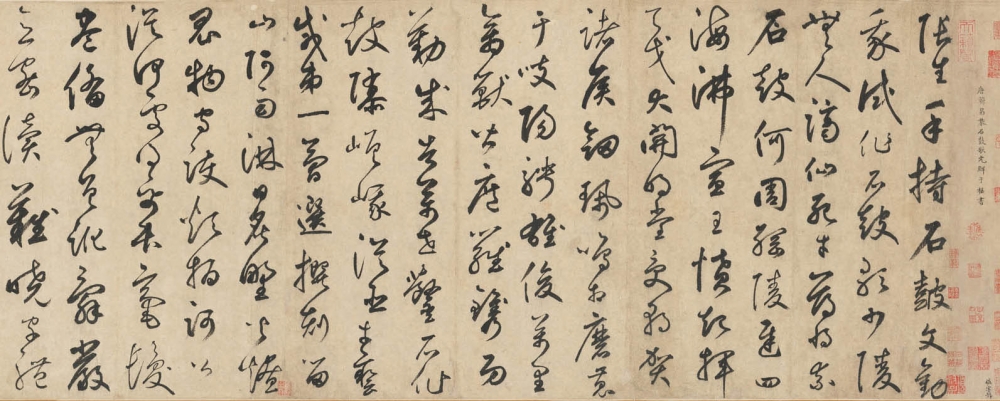 唐韓昌黎石鼓歌元鮮于樞書
張生手持石鼓文勸
我試作石鼓歌少陵
無人謫仙死才薄將奈
石鼓何周綱陵遲四
海沸宣王憤起揮
天戈大開明堂受朝賀
諸侯劍珮鳴相磨蒐
于岐陽騁雄俊萬里
禽獸皆遮羅鐫功
勒成告萬世鑿石作
鼓隳嵯峨從臣才藝
咸第一簡選撰刻留
山阿雨淋日炙野火燎
鬼物守護煩撝訶公
從何處得紙本毫髮
盡備無差訛辭嚴
義密讀難曉字體